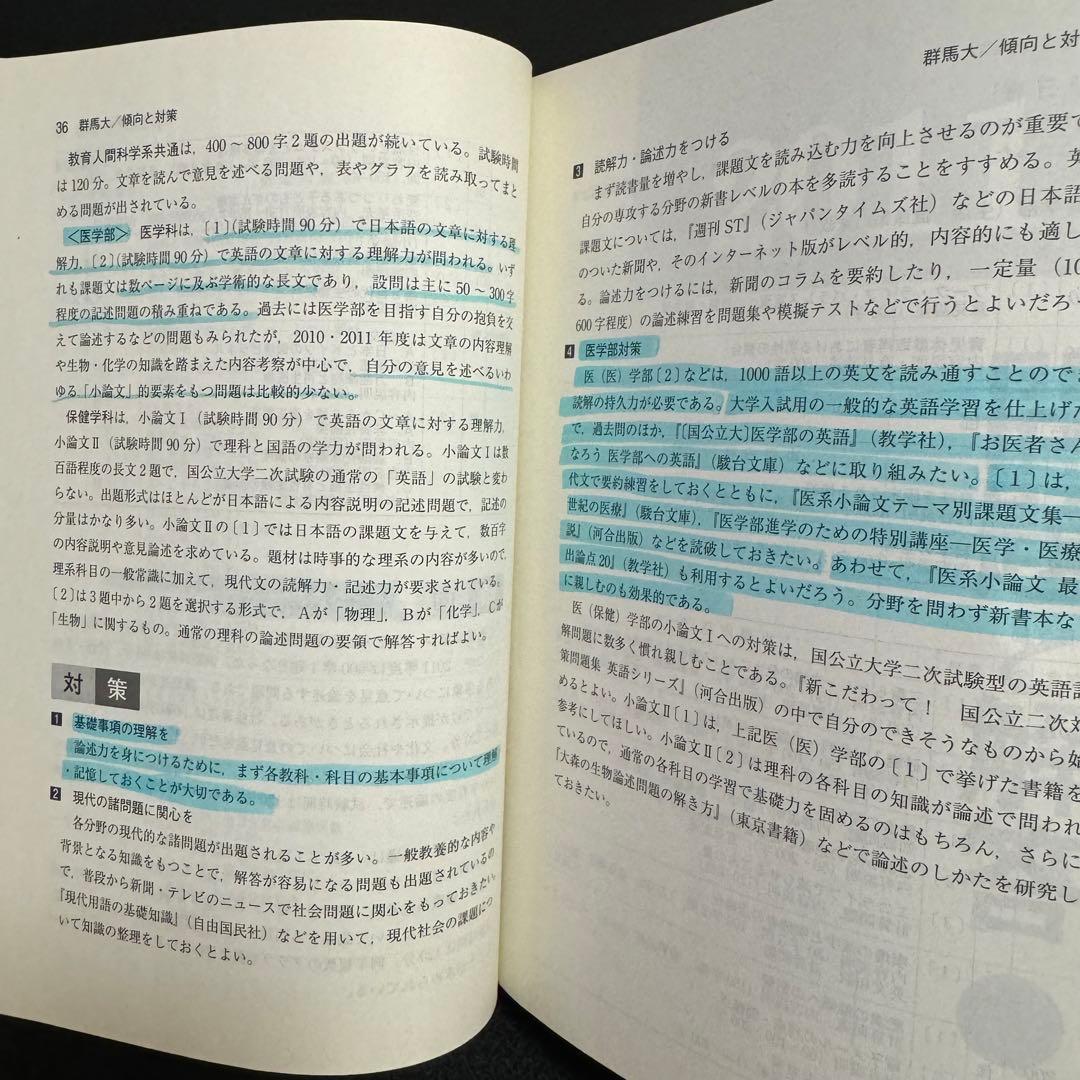 36 群馬大／傾向と対策
教育人間科学系共通は，400～800字2題の出題が続いている。試験時間
は120分。文章を読んで意見を述べる問題や，表やグラフを読み取ってまと
める問題が出されている。
〈医学部〉 医学科は，〔1〕(試験時間90分）で日本語の文章に対する理
解力，〔2〕(試験時間90分）で英語の文章に対する理解力が問われる。いず
れも課題文は数ページに及ぶ学術的な長文であり，設問は主に50～300字
程度の記述問題の積み重ねである。過去には医学部を目指す自分の抱負を交
えて論述するなどの問題もみられたが，2010・2011年度は文章の内容理解
や生物・化学の知識を踏まえた内容考察が中心で，自分の意見を述べるいわ
ゆる「小論文」的要素をもつ問題は比較的少ない。
保健学科は，小論文Ⅰ（試験時間90分）で英語の文章に対する理解力，
小論文Ⅱ（試験時間90分）で理科と国語の学力が問われる。小論文Ⅰは数
百語程度の長文2題で，国公立大学二次試験の通常の「英語」の試験と変わ
らない。出題形式はほとんどが日本語による内容説明の記述問題で，記述の
分量はかなり多い。小論文Ⅱの〔1〕では日本語の課題文を与えて，数百字
の内容説明や意見論述を求めている。題材は時事的な理系の内容が多いので，
理系科目の一般常識に加えて，現代文の読解力・記述力が要求されている。
〔2〕は3題中から2題を選択する形式で，Aが「物理」，Bが「化学」，Cが
「生物」に関するもの。通常の理科の論述問題の要領で解答すればよい。
対 策
1 基礎事項の理解を
論述力を身につけるために，まず各教科・科目の基本事項について理解
・記憶しておくことが大切である。
2 現代の諸問題に関心を
各分野の現代的な諸問題が出題されることが多い。一般教養的な内容や
背景となる知識をもつことで，解答が容易になる問題も出題されているの
で，普段から新聞・テレビのニュースで社会問題に関心をもっておきたい。
『現代用語の基礎知識』（自由国民社）などを用いて，現代社会の課題につ
いて知識の整理をしておくとよい。
群馬大／傾向と対
3 読解力・論述力をつける
まず読書量を増やし，課題文を読み込む力を向上させるのが重要で
自分の専攻する分野の新書レベルの本を多読することをすすめる。英
課題文については，『週刊ST』（ジャパンタイムズ社）などの日本語
のついた新聞や，そのインターネット版がレベル的，内容的にも適し
る。論述力をつけるには，新聞のコラムを要約したり，一定量（10
600字程度）の論述練習を問題集や模擬テストなどで行うとよいだろう
4 医学部対策
医（医）学部〔2〕などは，1000語以上の英文を読み通すことのでき
読解の持久力が必要である。大学入試用の一般的な英語学習を仕上げた
で，過去問のほか，『〔国公立大〕医学部の英語』（教学社），『お医者さん
なろう 医学部への英語』（駿台文庫）などに取り組みたい。〔1〕は，
代文で要約練習をしておくとともに，『医系小論文テーマ別課題文集―
世紀の医療』（駿台文庫），『医学部進学のための特別講座―医学・医療
説』（河合出版）などを読破しておきたい。あわせて，『医系小論文 最
出論点20』（教学社）も利用するとよいだろう。分野を問わず新書本な
に親しむのも効果的である。
医（保健）学部の小論文Ⅰへの対策は，国公立大学二次試験型の英語読
解問題に数多く慣れ親しむことである。『新こだわって！ 国公立二次対
策問題集 英語シリーズ』（河合出版）の中で自分のできそうなものから始
めるとよい。小論文Ⅱ〔1〕は，上記医（医）学部の〔1〕で挙げた書籍を
参考にしてほしい。小論文Ⅱ〔2〕は理科の各科目の知識が論述で問われ
ているので，通常の各科目の学習で基礎力を固めるのはもちろん，さらに
『大森の生物論述問題の解き方』（東京書籍）などで論述のしかたを研究し
ておきたい。